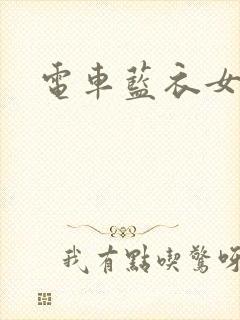 電車藍衣女
我有點喫驚呀